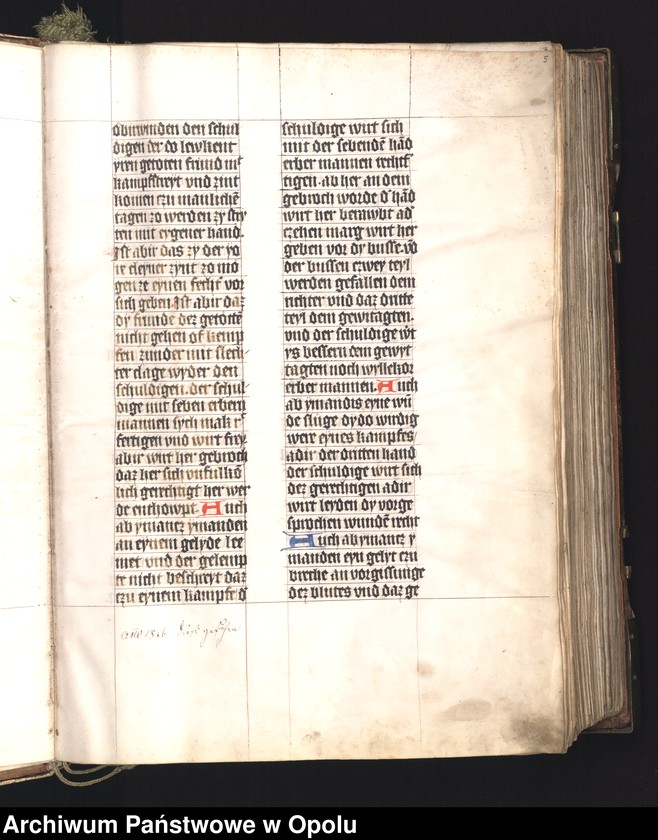 5
obirwinden den schul
digen der do lewkent
yren getoten frund mit
kampfstreyt vnd zint
komen czu manlichē
tagen zo werden zy stry
ten mit eygener hand.
Jst abir das zy der yo
re cleyner zynt zo mö
gen ze eynen fecht vor
sich geben. Jst abir daz
dy frunde dez getotē
nicht gehen of kemp
fen zunder mit slech
ter clage wyder den
schuldigen. der schul
dige mit seben erbern
mannen sych mak r
fertigen vnd wirt fry.
abir wirt her gebroch
daz her sich vnfulkō
lich gerechtigt her wer
de enthowpt. Auch
ab ymantz ymanden
an eynem gelyde lee
met vnd der gelemp
te nicht beschreyt daz
czu eynem kampfe d
schuldige wirt sich
mit der sebendē hād
erber mannen rechtf
tigen. ab her an dem
gebroch worde d hād
wirt her berowbt ad
czehen marg wirt her
geben vor dy busse. vō
der bussen czwey teyl
werden gefallen dem
richter vnd daz dritte
teyl dem gewntagten.
vnd der schuldige wt
ys bessern dem gewyt
tagten noch wyllekor
erber mannen. Auch
ab ymandis eyne wū
de sluge dy do wirdig
were eynes kampfes
adir der dritten hand
der schuldige wirt sich
dez gerechtigen adir
wirt leyden dy vorge
sprochen wundē recht
Auch ab ymantz y
manden eyn gelyt czu
breche an vorgissunge
dez blutes vnd daz ge
Archiwum Państwowe w Opolu